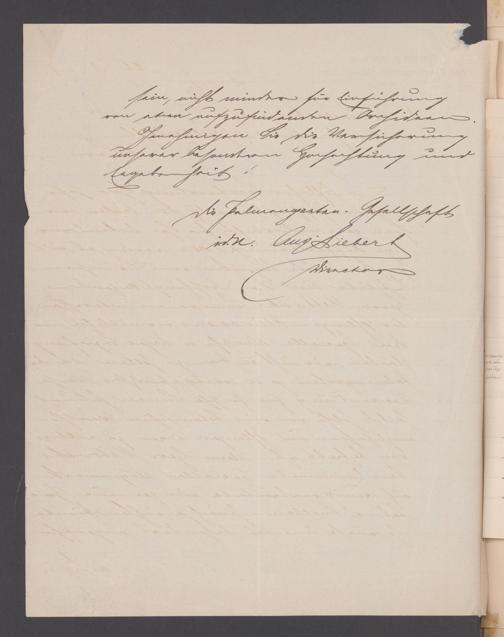 sein, nicht minder für Einführung
von etwa aufzufindenden Orchideen.
Genehmigen Sie die Versicherung
unserer besondern Hochachtung und
Ergebenheit!
Die Palmengarten-Gesellschaft
Aug. Siebert
Director